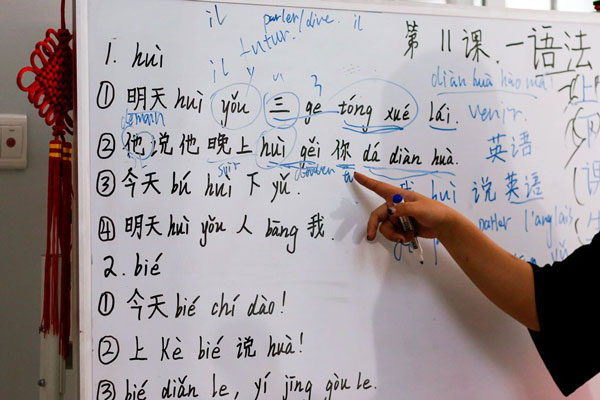 il parler/dire. il
futur.
第 11 课. 一 语法
1. huì
il y
diàn huà hào mǎ
① 明天 huì yǒu 三 ge tóng xué lái. venir.
demain
② 他说他晚上 huì gěi 你 dá diàn huà. 英语
soir tu
③ 今天 bú huì 下 yǔ. huì 说英语
parler l'anglais
④ 明天 huì yǒu 人 bāng 我.
2. bié
① 今天 bié chí dào!
② 上 Kè bié 说 huà!
③ bié diǎn le, yí jīng gòu le.